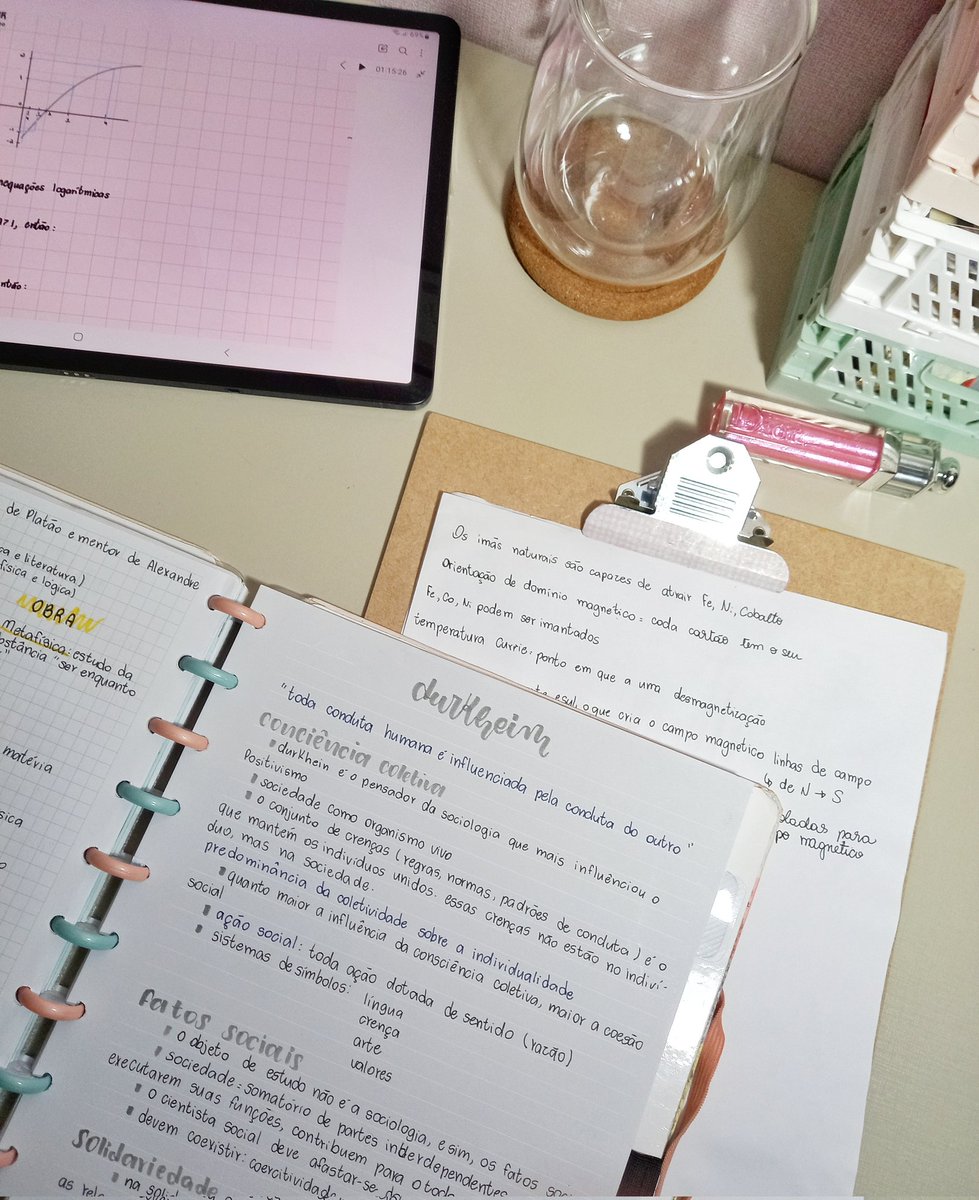 69%
01:15:26
2
1
logarítmicas
então:
de Platão e mentor de Alexandre
e literatura)
física e lógica)
OBRA
Metafísica: estudo da
"ser enquanto
matéria
Os imãs naturais são capazes de atrair Fe, Ni, Cobalto
Orientação de dominio magnetico = cada cartão tem o seu
Fe, Co, Ni podem ser imantados
temperatura Currie: ponto em que a uma desmagnetização
o que cria o campo magnetico linhas de campo
↳ de N → S
para
magnetico
durkheim
"toda conduta humana é influenciada pela conduta do outro"
conciência coletiva
durkhein é o pensador da sociologia que mais influênciou o
Positivismo
sociedade como organismo vivo
o conjunto de crenças (regras, normas, padrões de conduta) é o
que mantem os individuos unidos. essas crenças não estão no indiví-
duo, mas na sociedade.
predominância da coletividade sobre a individualidade
quanto maior a influência da consciência coletiva, maior a coesão
social
ação social: toda ação dotada de sentido (razão)
sistemas de simbolos: língua
crença
arte
valores
fatos sociais
o objeto de estudo não é a sociologia, e sim, os fatos
sociedade = somatório de partes interdependentes
executarem suas funções, contribuem para o
o cientista social deve afastar-se
devem coexistir: coercitividade
solidariedade
na
as